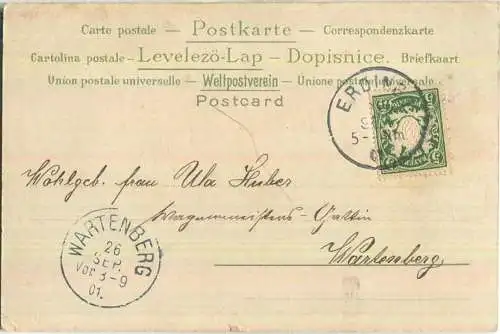 Carte postale - Postkarte - Correspondenzkarte
Cartolina postale - Levelezö-Lap - Dopisnice. Briefkaart
Union postale universelle - Weltpostverein - Unione postale universale.
Postcard
ERDING
5-
Wohlgeb. frau Ula Huber
Wagnermeisters-Gattin
Wartenberg
WARTENBERG
26
SEP.
VOR 8-9
01.